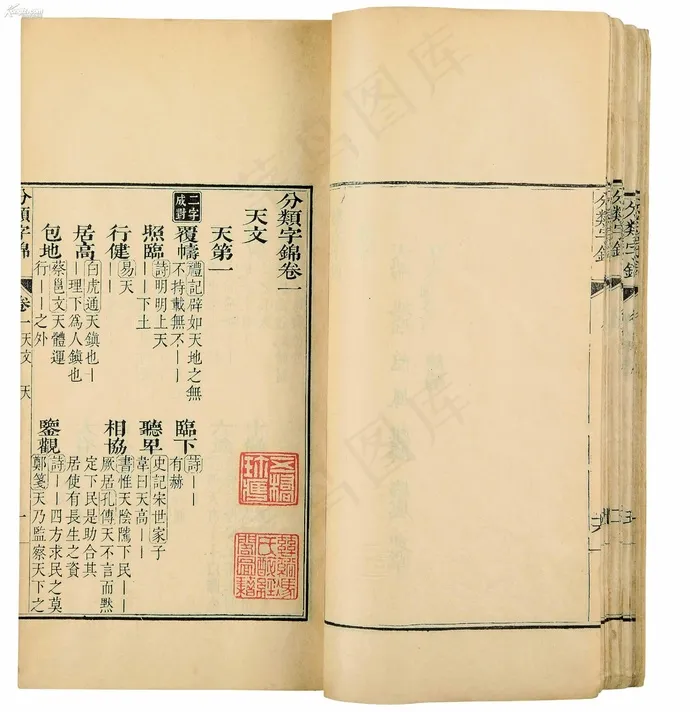 分類字錦卷一
天文
天第一
二字成對
覆幬禮記辟如天地之無不持載無不｜｜
臨下詩｜｜有赫
照臨詩明明上天｜｜下土
聽卑史記宋世家子韋曰天高｜｜
行健易天｜｜
相協書惟天陰騭下民｜｜厥居孔傳天不言而默定下民是助合其居使有長生之資
居高白虎通天鎮也｜｜理下為人鎮也
包地蔡邕文天體運行｜｜之外
鑒觀詩｜｜四方求民之莫鄭箋天乃監察天下之
分類字錦
卷一天文 天
一
分類字錦
分類字錦
分類字錦